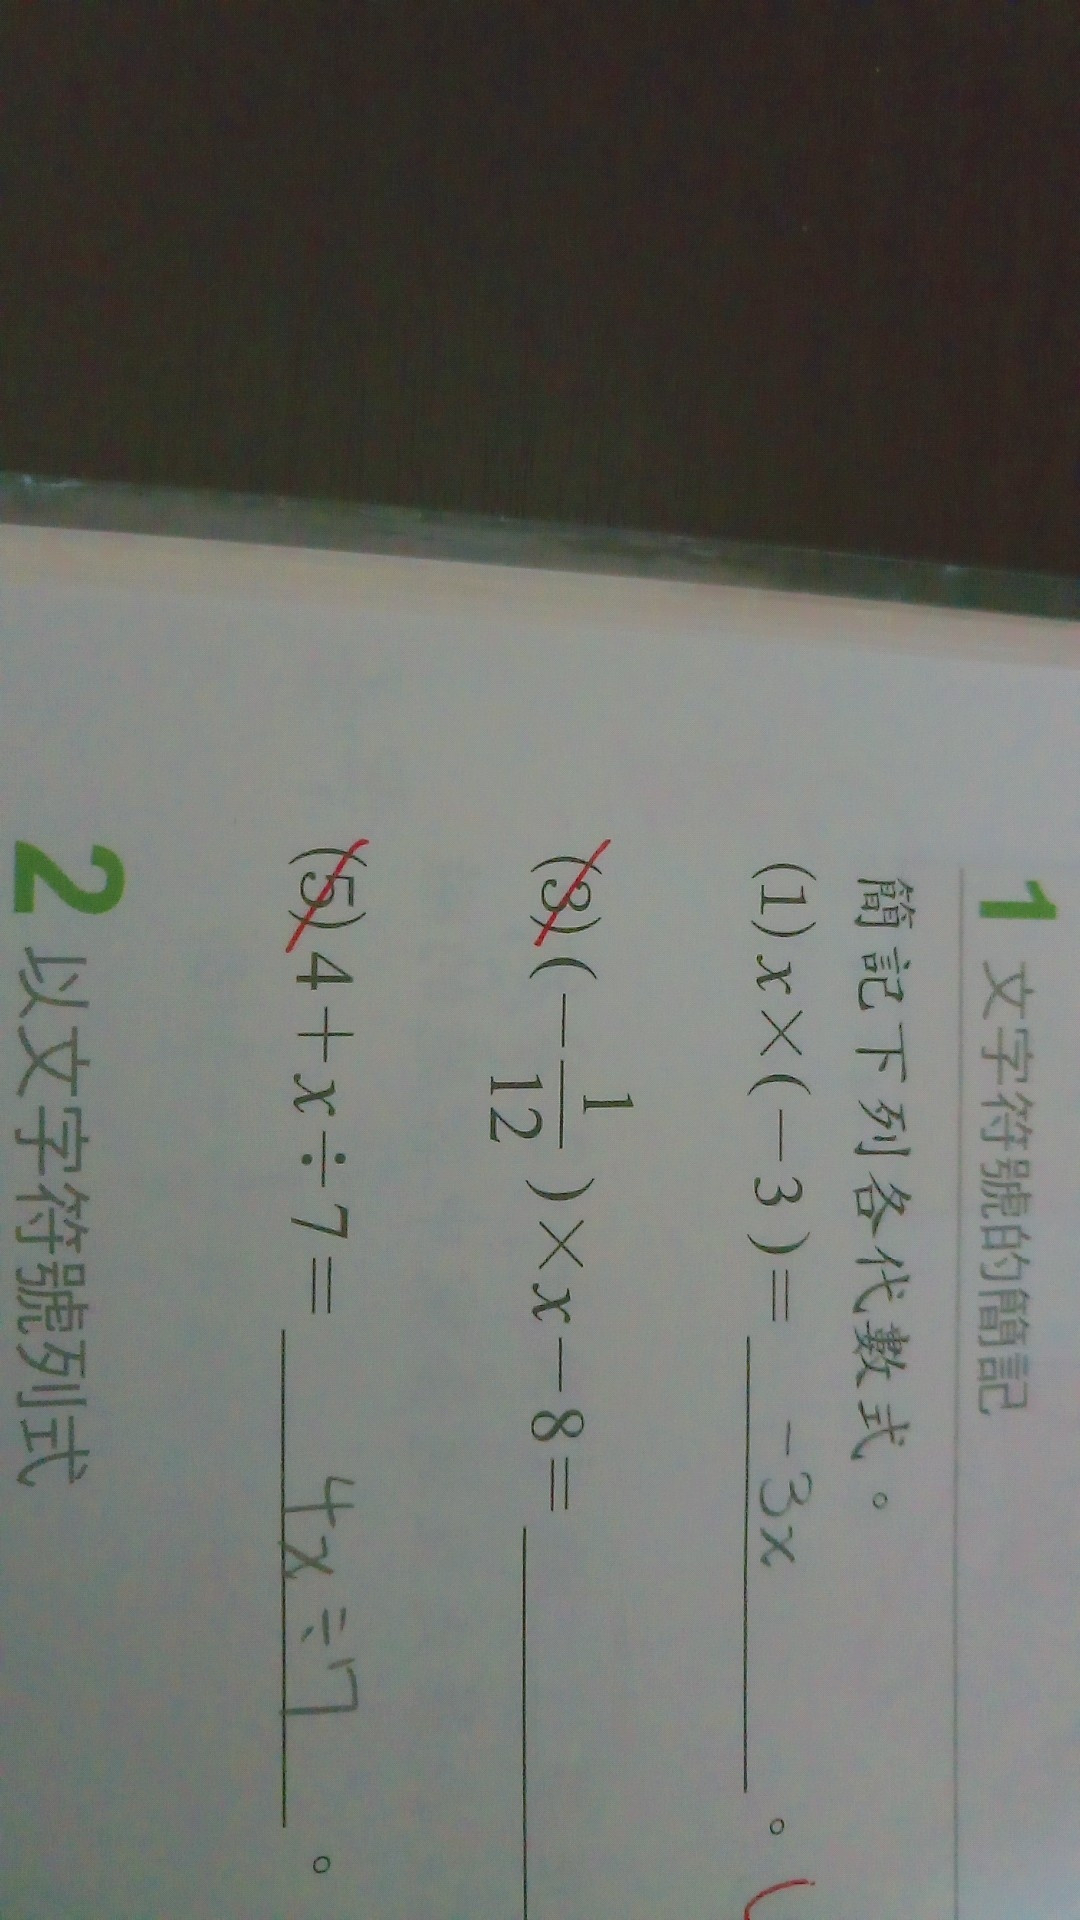 1 文字符號的簡記
簡記下列各代數式。
(1) x×(-3)= -3x 。
(3) (-1/12)×x-8=
(5) 4+x÷7= 4x÷7 。
2 以文字符號列式